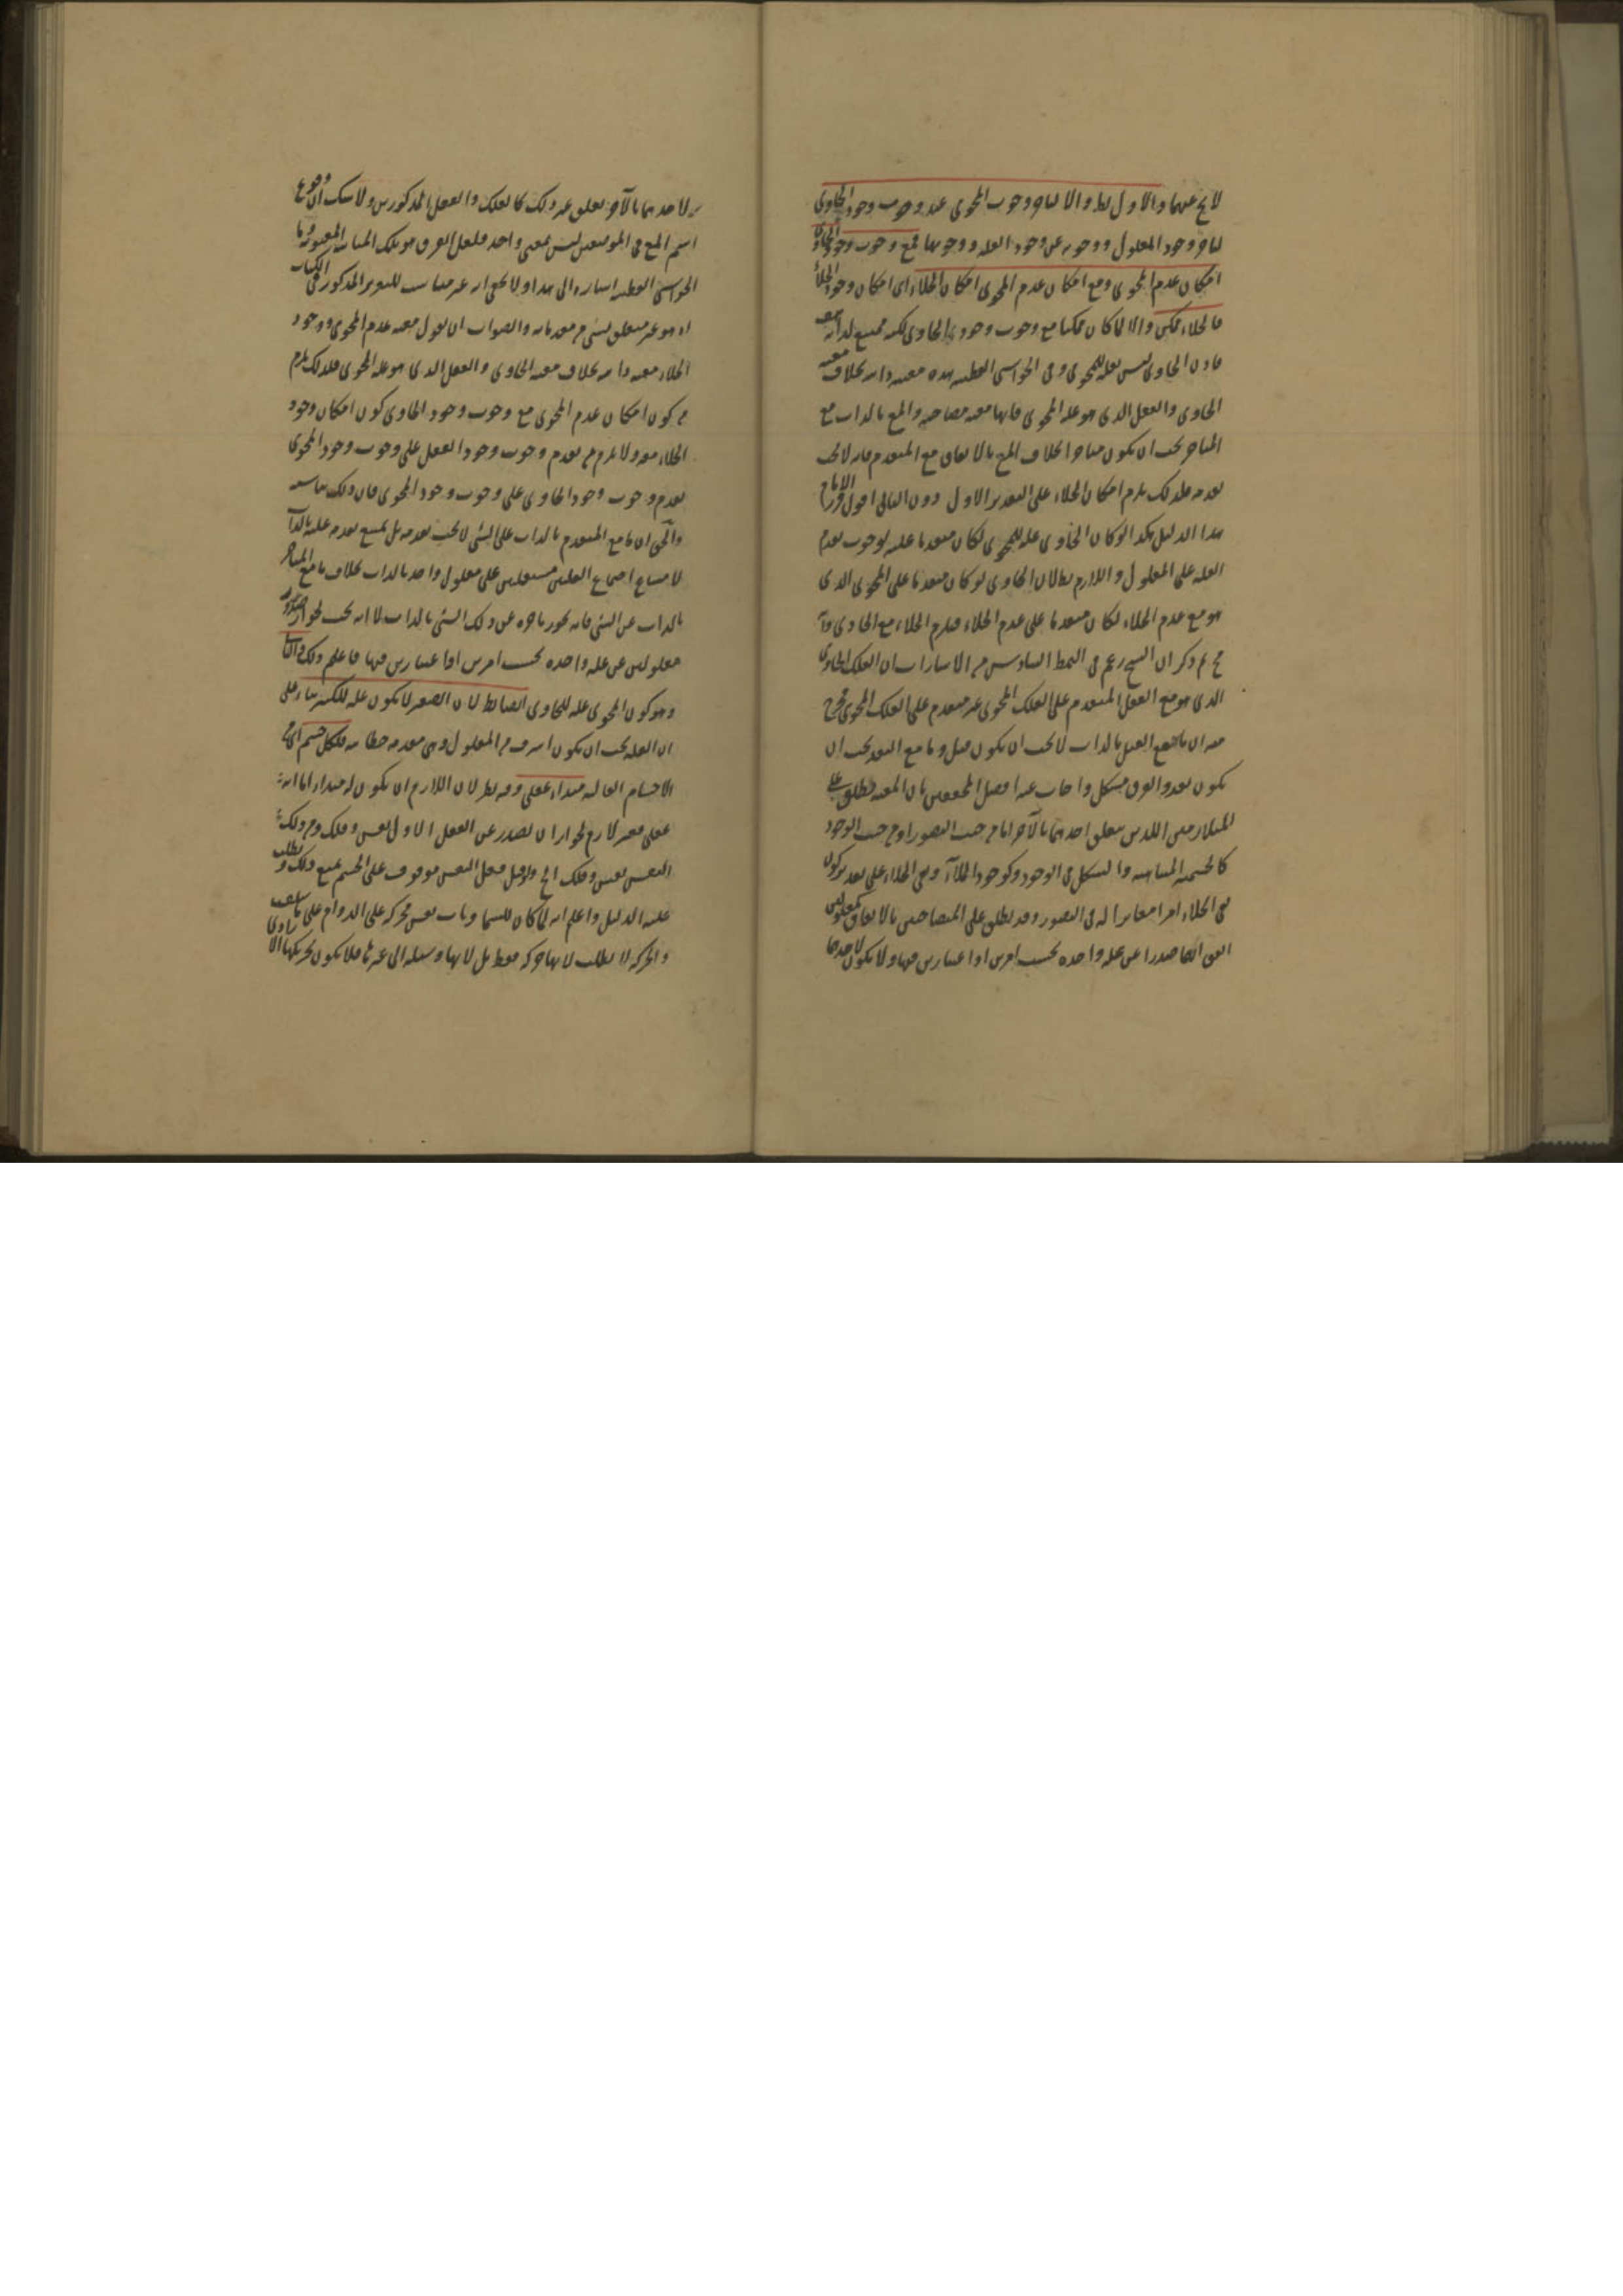 لا يخ عنهما والاول بط والا لتاخر وجوب المحوى عند وجوب وجود الحاوى
لتاخر وجود المعلول ووجوبه عن وجود العلة ووجوبها فمع وجوب وجود الحاوى
امكان عدم المحوى ومع امكان عدم المحوى امكان الخلاء اى امكان وجود الخلاء
فالخلاء ممكن والا لما كان ممكنا مع وجوب وجود الحاوى لكنه ممتنع لذاته
فاذن الحاوى ليس بعلة للمحوى وفى الحواشى القطبية هذه معية ذاتية بخلاف معية
الحاوى والعقل الذى هو علة المحوى فانها معية مصاحبة والمع بالذات مع
المتاخر يجب ان يكون متاخرا بخلاف المع بالاتفاق مع المتقدم فانه لا يجب
تقدمه فلذلك يلزم امكان الخلاء على التقدير الاول دون الثانى اقول الامام
هذا الدليل هكذا لو كان الحاوى علة للمحوى لكان متقدما عليه لوجوب تقدم
العلة على المعلول واللازم بط لان الحاوى لو كان متقدما على المحوى الذى
هو مع عدم الخلاء لكان متقدما على عدم الخلاء فيلزم الخلاء مع الحاوى
ثم ذكر ان الشيخ زعم فى النمط السادس من الاشارات ان الفلك الحاوى
الذى هو مع العقل المتقدم على الفلك المحوى غير متقدم على الفلك المحوى فخرج
منه ان ما مع القبل بالذات لا يجب ان يكون قبل وما مع البعد يجب ان
يكون بعد والفرق مشكل واجاب عنه افضل المحققين بان المعية تطلق على
المتلازمين اللذين يتعلق احدهما بالآخر اما من حيث التصور او من حيث الوجود
كالجسمية المتناهية والتشكل فى الوجود وكوجود الملاء ونفى الخلاء على تقدير كون
نفى الخلاء امرا مغايرا له فى التصور وقد تطلق على المتصاحبين بالاتفاق كمعلولين
اتفق انهما صدرا عن علة واحدة بحسب امرين او اعتبارين فيها ولا يكون لاحدهما
لاحدهما بالآخر تعلق غير ذلك كالفلك والعقل المذكورين ولا شك ان وقوع
اسم المع فى الموضعين ليس بمعنى واحد فلعل الفرق هو تلك المباينة المعنوية وما
الحواشى القطبية اشارة الى هذا ولا يخفى انه غير مناسب للتقرير المذكور فى الكتاب
اذ هو غير متعلق بشئ من مقدماته والصواب ان يقول معية عدم المحوى ووجود
الخلاء معية ذاتية بخلاف معية الحاوى والعقل الذى هو علة المحوى فلذلك يلزم
من كون امكان عدم المحوى مع وجوب وجود الحاوى كون امكان وجود
الخلاء معه ولا يلزم من تقدم وجوب وجود العقل على وجوب وجود المحوى
تقدم وجوب وجود الحاوى على وجوب وجود المحوى فان ذلك
والحق ان ما مع المتقدم بالذات على الشئ لا يجب تقدمه بل يمتنع تقدمه عليه بالذات
لامتناع اجتماع العلتين مستقلتين على معلول واحد بالذات بخلاف ما مع المتاخر
بالذات عن الشئ فانه يجوز تاخره عن ذلك الشئ بالذات لا انه يجب لجواز صدور
معلولين عن علة واحدة بحسب امرين او اعتبارين فيها فاعلم ذلك والثانى
وهو كون المحوى علة للحاوى ايضا بط لان الصغير لا يكون علة للكبير بناء على
ان العلة يجب ان يكون اشرف من المعلول وهى مقدمة خطابية فلكل جسم من
الاجسام العالية مبداء عقلى وفيه نظر لان اللازم ان يكون له مبداء اما انه
عقلى فغير لازم لجواز ان تصدر عن العقل الاول نفس وفلك ومن ذلك
النفس نفس وفلك الخ ولو قيل فعل النفس موقوف على الجسم يمنع ذلك ونطلب
عليه الدليل واعلم انه لما كان للسماويات نفس محركة على الدوام على ما سلف
والحركة لا تطلب لانها حركة فقط بل لانها وسيلة الى غيرها فلا يكون تحريكها الا